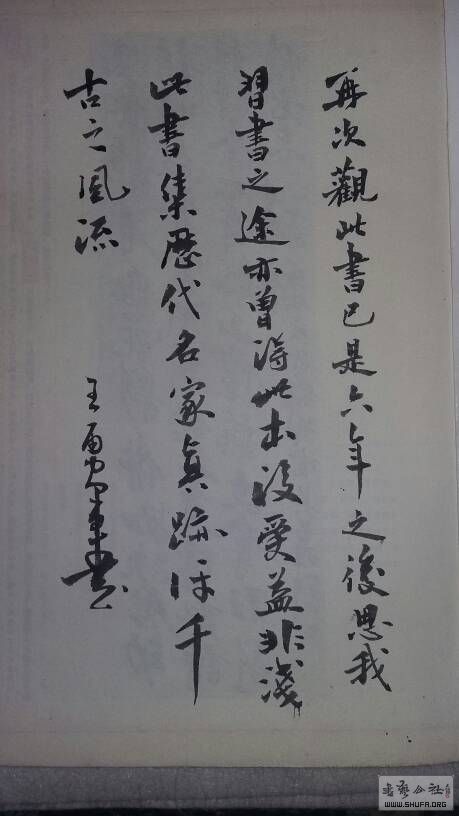 再次觀此書已是六年之後思我
習書之途亦曾得此書受益非淺
此書集歷代名家真跡浮千
古之風流
王勇軍書
書藝公社
WWW.SHUFA.ORG